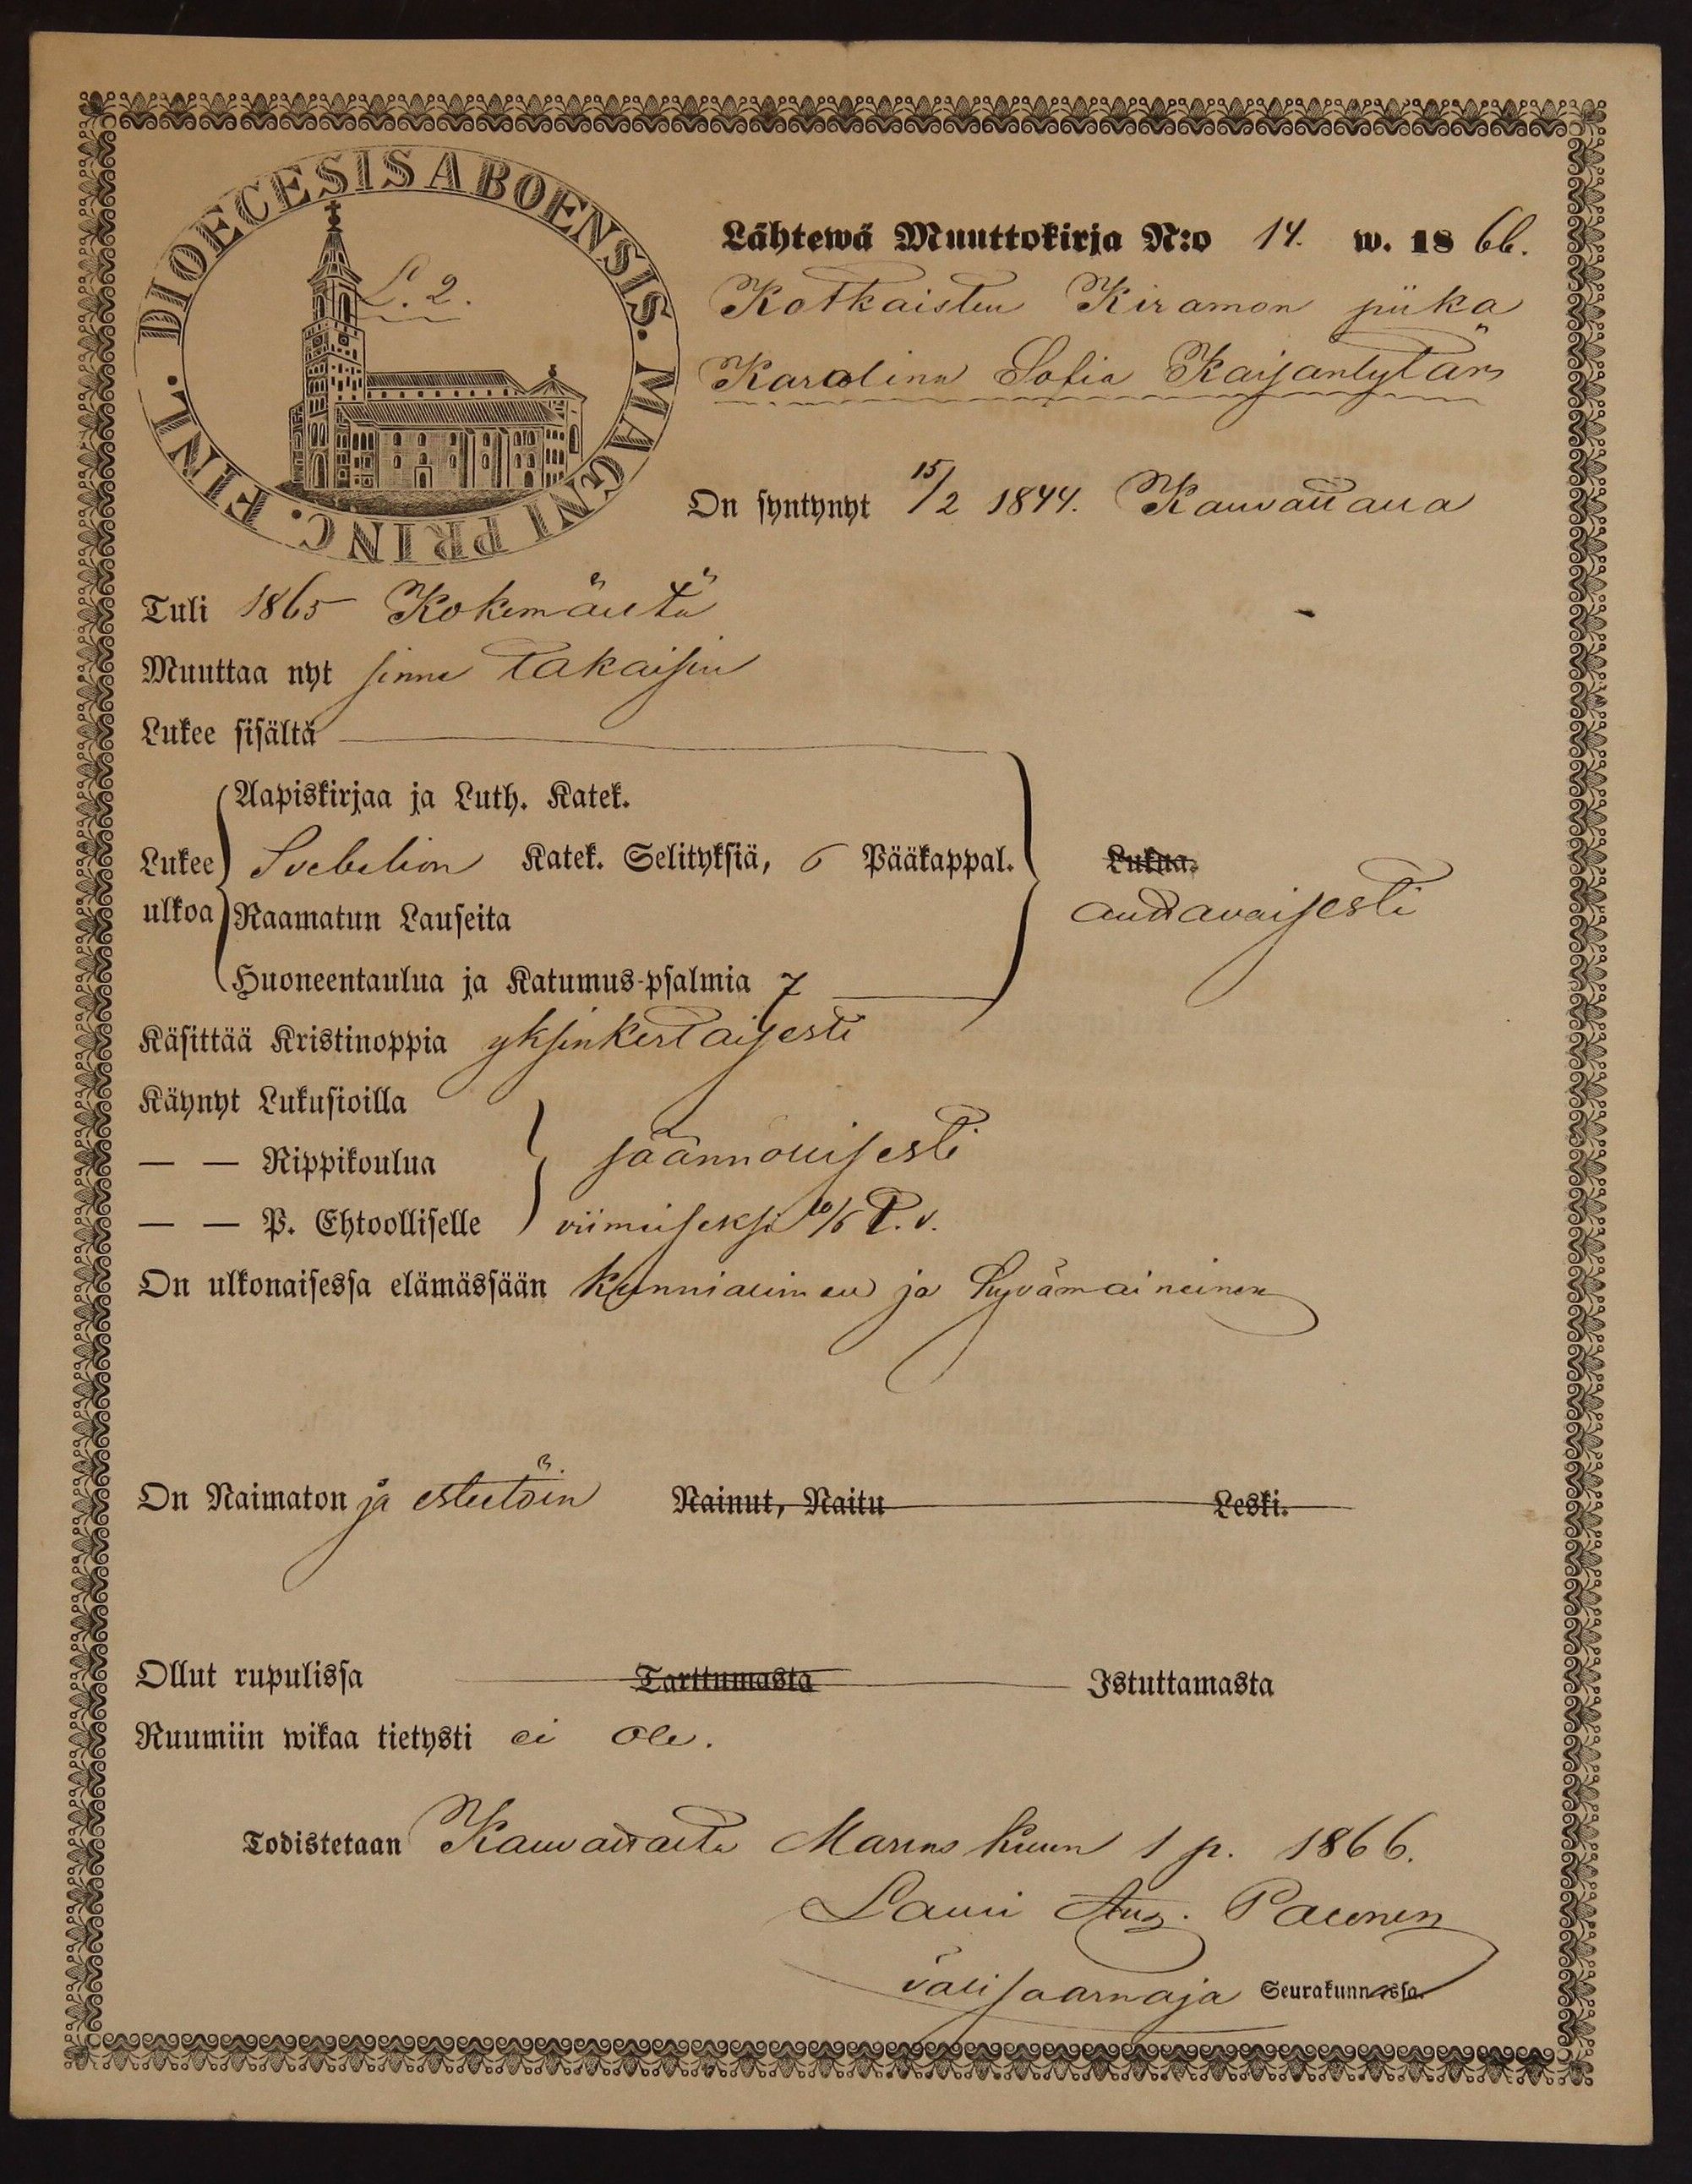 DIOECESIS ABOENSIS. MAGNI PRINC. FINL.
L. 2.
Lähtewä Muuttokirja N:o 14. w. 1866.
Kotkaisten Kiramon piika
Karolina Sofia Kaijantytär
On syntynyt 15/2 1844. Kauvattana
Tuli 1865 Kokemäeltä
Muuttaa nyt sinne takaisin
Lukee sisältä
Lukee ulkoa
Aapiskirjaa ja Luth. Katek.
Svebelion Katek. Selityksiä, 6 Pääkappal.
Raamatun Lauseita
Huoneentaulua ja Katumus-psalmia 7
Lukua.
auttavaisesti
Käsittää Kristinoppia yksinkertaisesti
Käynyt Lukusioilla
— — Rippikoulua säännöllisesti
— — P. Ehtoolliselle viimeiseksi 10/6 t. v.
On ulkonaisessa elämässään kunniallinen ja hyvämaineinen
On Naimaton ja esteetöin Nainut, Naitu Leski.
Ollut rupulissa Tarttumasta Istuttamasta
Ruumiin wikaa tietysti ei ole.
Todistetaan Kauvatsalla Marras kuun 1 p. 1866.
Lauri Aug. Paeonen
välisaarnaja Seurakunnassa.